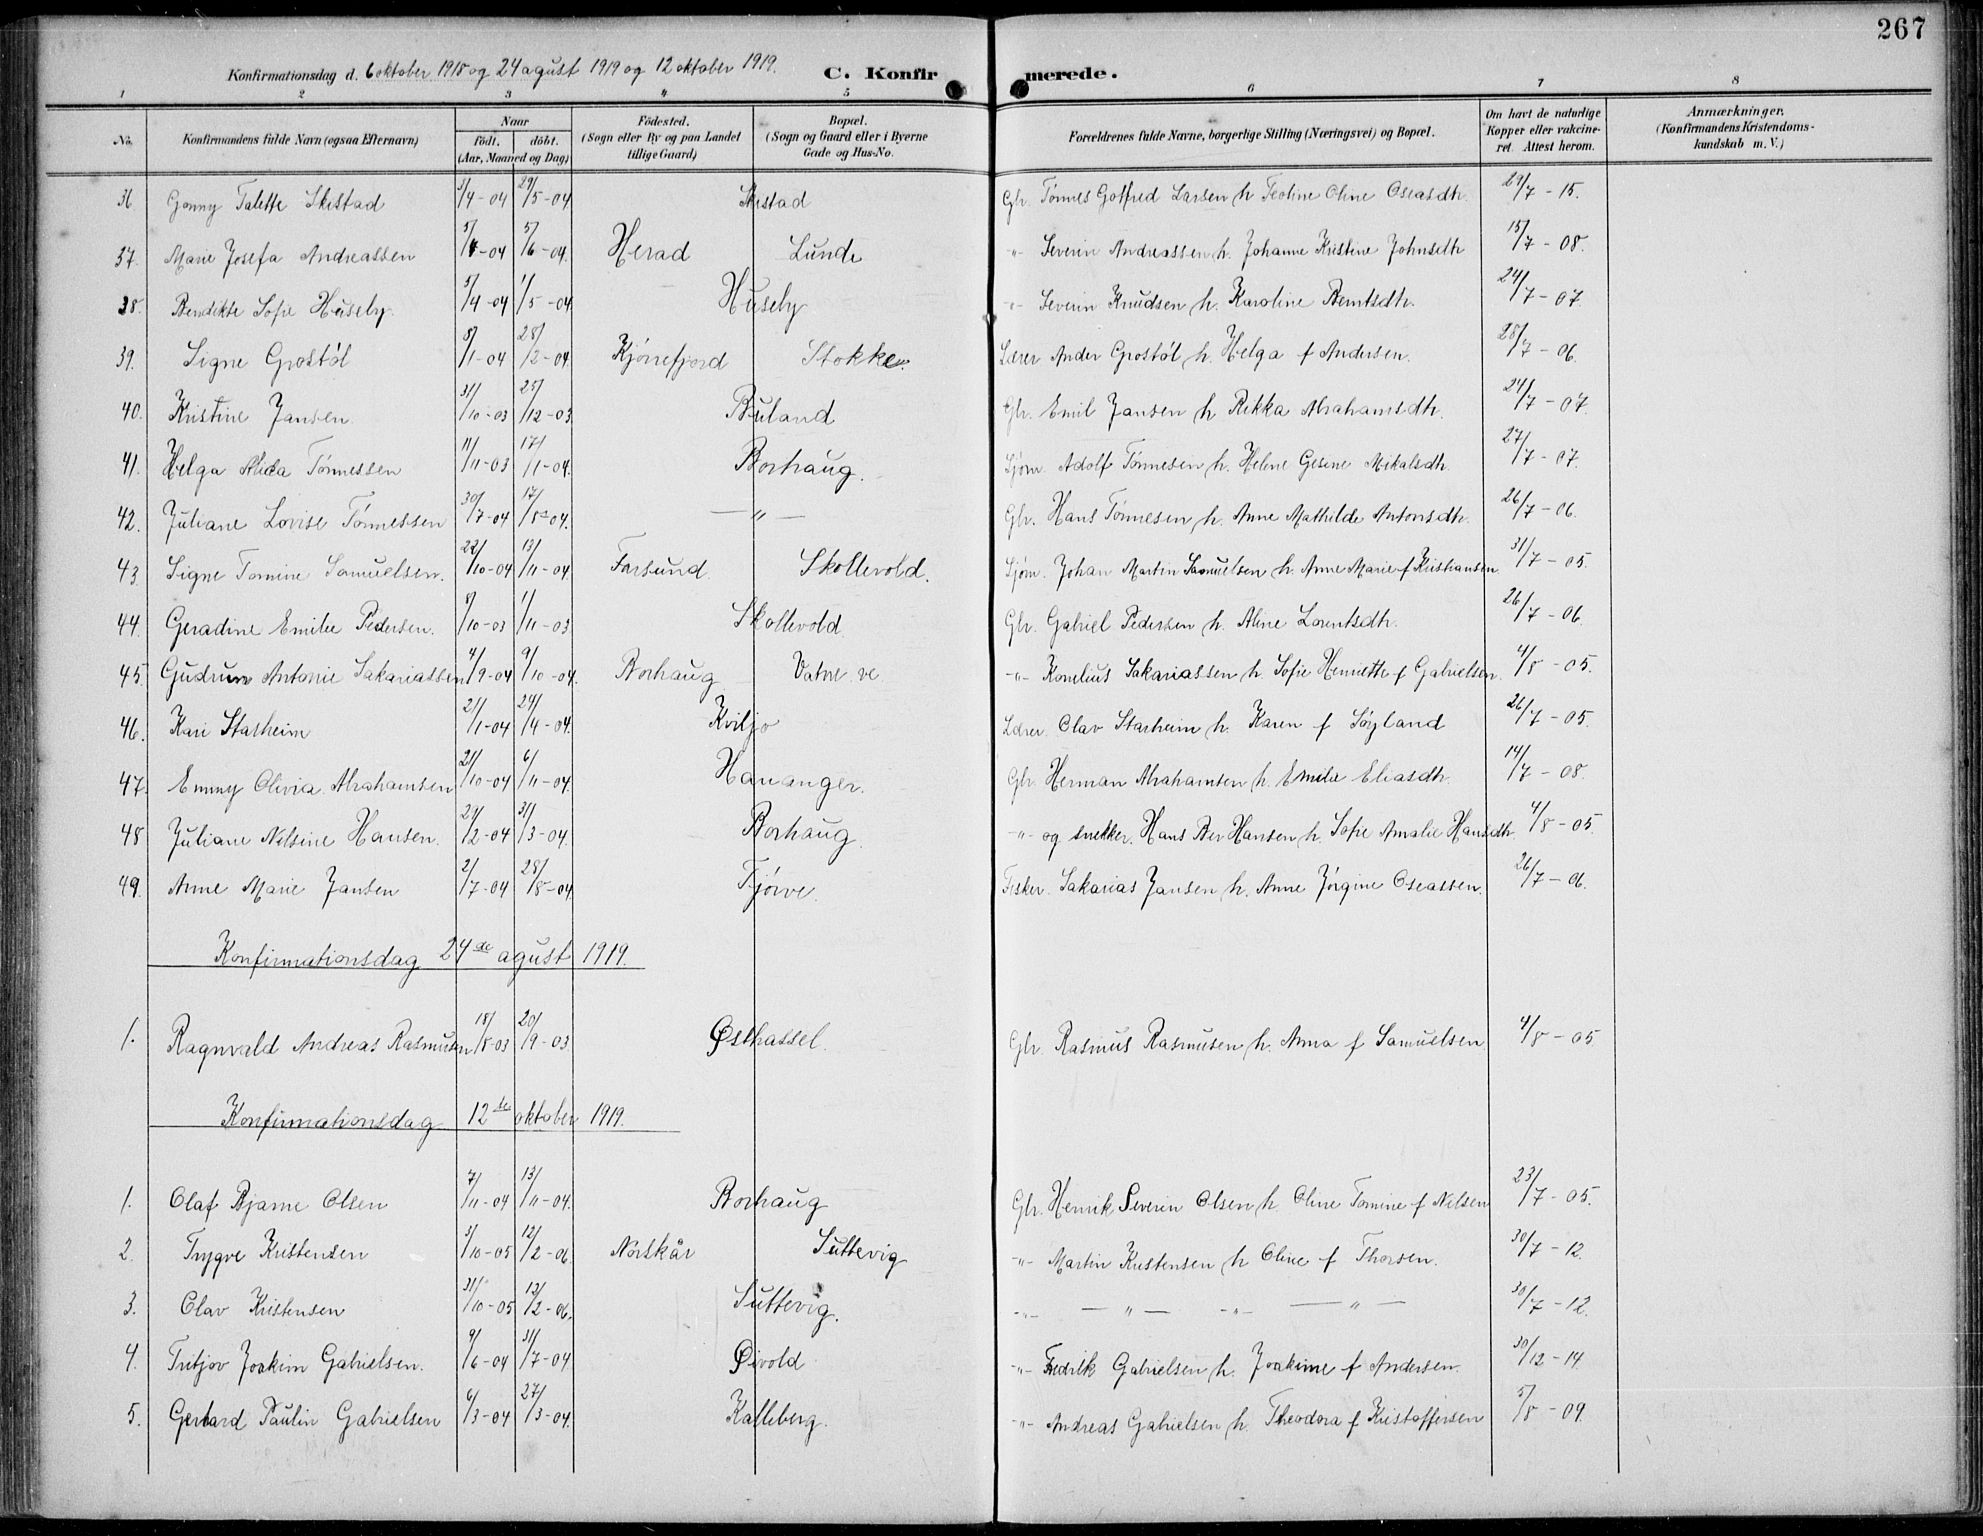 267
Konfirmationsdag d. 6 oktober 1918 og 24 agust 1919 og 12 oktober 1919. C. Konfirmerede.
1 2 3 4 5 6 7 8
No. Konfirmandens fulde Navn (ogsaa Efternavn) Naar födt. döbt. (Aar, Maaned og Dag) Födested. (Sogn eller By og paa Landet tillige Gaard) Bopæl. (Sogn og Gaard eller i Byerne Gade og Hus-No. Forældrenes fulde Navne, borgerlige Stilling (Næringsvei) og Bopæl. Om havt de naturlige Kopper eller vakcineret. Attest herom. Anmærkninger. (Konfirmandens Kristendomskundskab m.V.)
36. Gonny Talette Skistad 3/4-04 29/5-04 Skistad Gbr. Tønnes Gotfred Larsen h. Teoline Oline Oseasdh. 29/7-15.
37. Marie Josefa Andreassen 5/4-04 5/6-04. Herad Lunde -"- Severin Andreassen h. Johanne Kristine Johnsdth 15/7-08.
38. Bendikte Sofie Huseby 5/4-04 1/5-04. Huseby -"- Severin Knudsen h. Karoline Berntsdh. 24/7-07.
39. Signe Grostøl 8/1-04 28/2-04. Kjørrefjord Stokke. Lærer Ander Grostøl h. Helga f Andersen. 28/7-06.
40. Kristine Jansen 31/10-03 25/12-03 Buland Gbr. Emil Jansen h. Rikka Abrahamsdh. 24/7-07.
41. Helga Alida Tønnessen 11/11-03 17/1-04. Borhaug. Sjøm. Adolf Tønnesen h. Helene Gesine Mikalsdh. 27/7-07.
42. Juliane Lovise Tønnessen 30/7-04 17/8-04. —"— Gbr. Hans Tønnesen h. Anne Mathilde Antonsdh. 26/7-06.
43. Signe Tomine Samuelsen. 22/10-04 13/11-04. Farsund. Skollevold. Sjøm. Johan Martin Samuelsen h. Anne Marie f Kristiansen 31/7-05.
44. Geradine Emilie Pedersen. 8/10-03 1/11-03 Skollevold. Gbr. Gabriel Pedersen h. Aline Lorentsdh. 26/7-06.
45. Gudrun Antonie Sakariassen 4/9-04 9/10-04. Borhaug Vatne ve -"- Konelius Sakariassen h. Sofie Henriette f Gabrielsen. 4/8-05.
46. Kari Starheim 21/1-04 24/4-04. Kviljo Lærer. Olav Starheim h. Karen f Søyland 26/7-05.
47. Emmy Olivia Abrahamsen 21/10-04 6/11-04. Hananger. Gbr. Herman Abrahamsen h. Emilie Eliasdh. 14/7-08.
48 Juliane Nilsine Hansen. 29/2-04 31/3-04. Borhaug -"- og snekker. Hans Ber Hansen h. Sofie Amalie Hansdh. 4/8-05.
49. Anne Marie Jansen 2/7-04 28/8-04. Tjørve. Fisker. Sakarias Jansen h. Anne Jørgine Oseassen. 26/7-06.
Konfirmationsdag 24de agust 1919.
1. Ragnvald Andreas Rasmusen 18/8-03 20/9-03. Østhassel. Gbr. Rasmus Rasmusen h. Anna f Samuelsen 4/8-05
Konfirmationsdag 12te oktober 1919.
1. Olaf Bjarne Olsen 7/11-04 13/11-04. Borhaug Gbr. Henrik Severin Olsen h. Oline Tomine f Nilsen 23/7-05.
2. Trygve Kristensen 31/10-05 12/2-06. Norskår Suttevig -"- Martin Kristensen h Oline f Thorsen. 30/7-12.
3. Olav Kristensen 31/10-05 12/2-06. Suttevig. -"- —"— -"- —"— 30/7-12.
4. Fritjov Joakim Gabrielsen. 9/6-04 31/7-04 Øivold -"- Fredrik Gabrielsen h. Joakime f Andersen. 30/12-14.
5. Gerhard Paulin Gabrielsen 6/3-04 27/3-04. Kalleberg. -"- Andreas Gabrielsen h. Theodora f Kristoffersen 5/8-09.